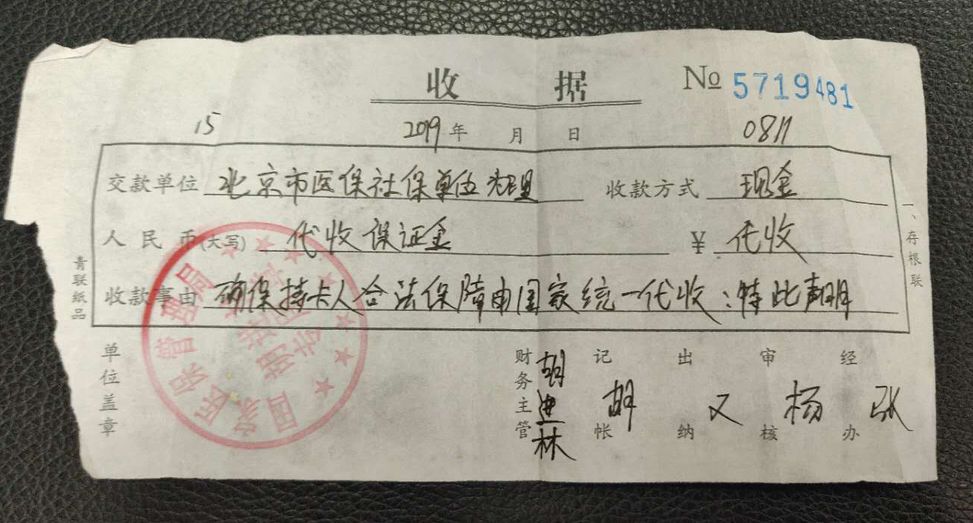 收据 № 5719481
15 2019年 月 日 0811
交款单位 北京市医保社保单位 收款方式 现金
人民币(大写) 代收保证金 ¥ 代收
收款事由 确保持卡人合法保障由国家统一代收:特此声明
青联纸品
一、存根联
单位盖章
财务主管 胡进林 记帐 胡 出纳 又 审核 杨 经办 张
国家医保管理局